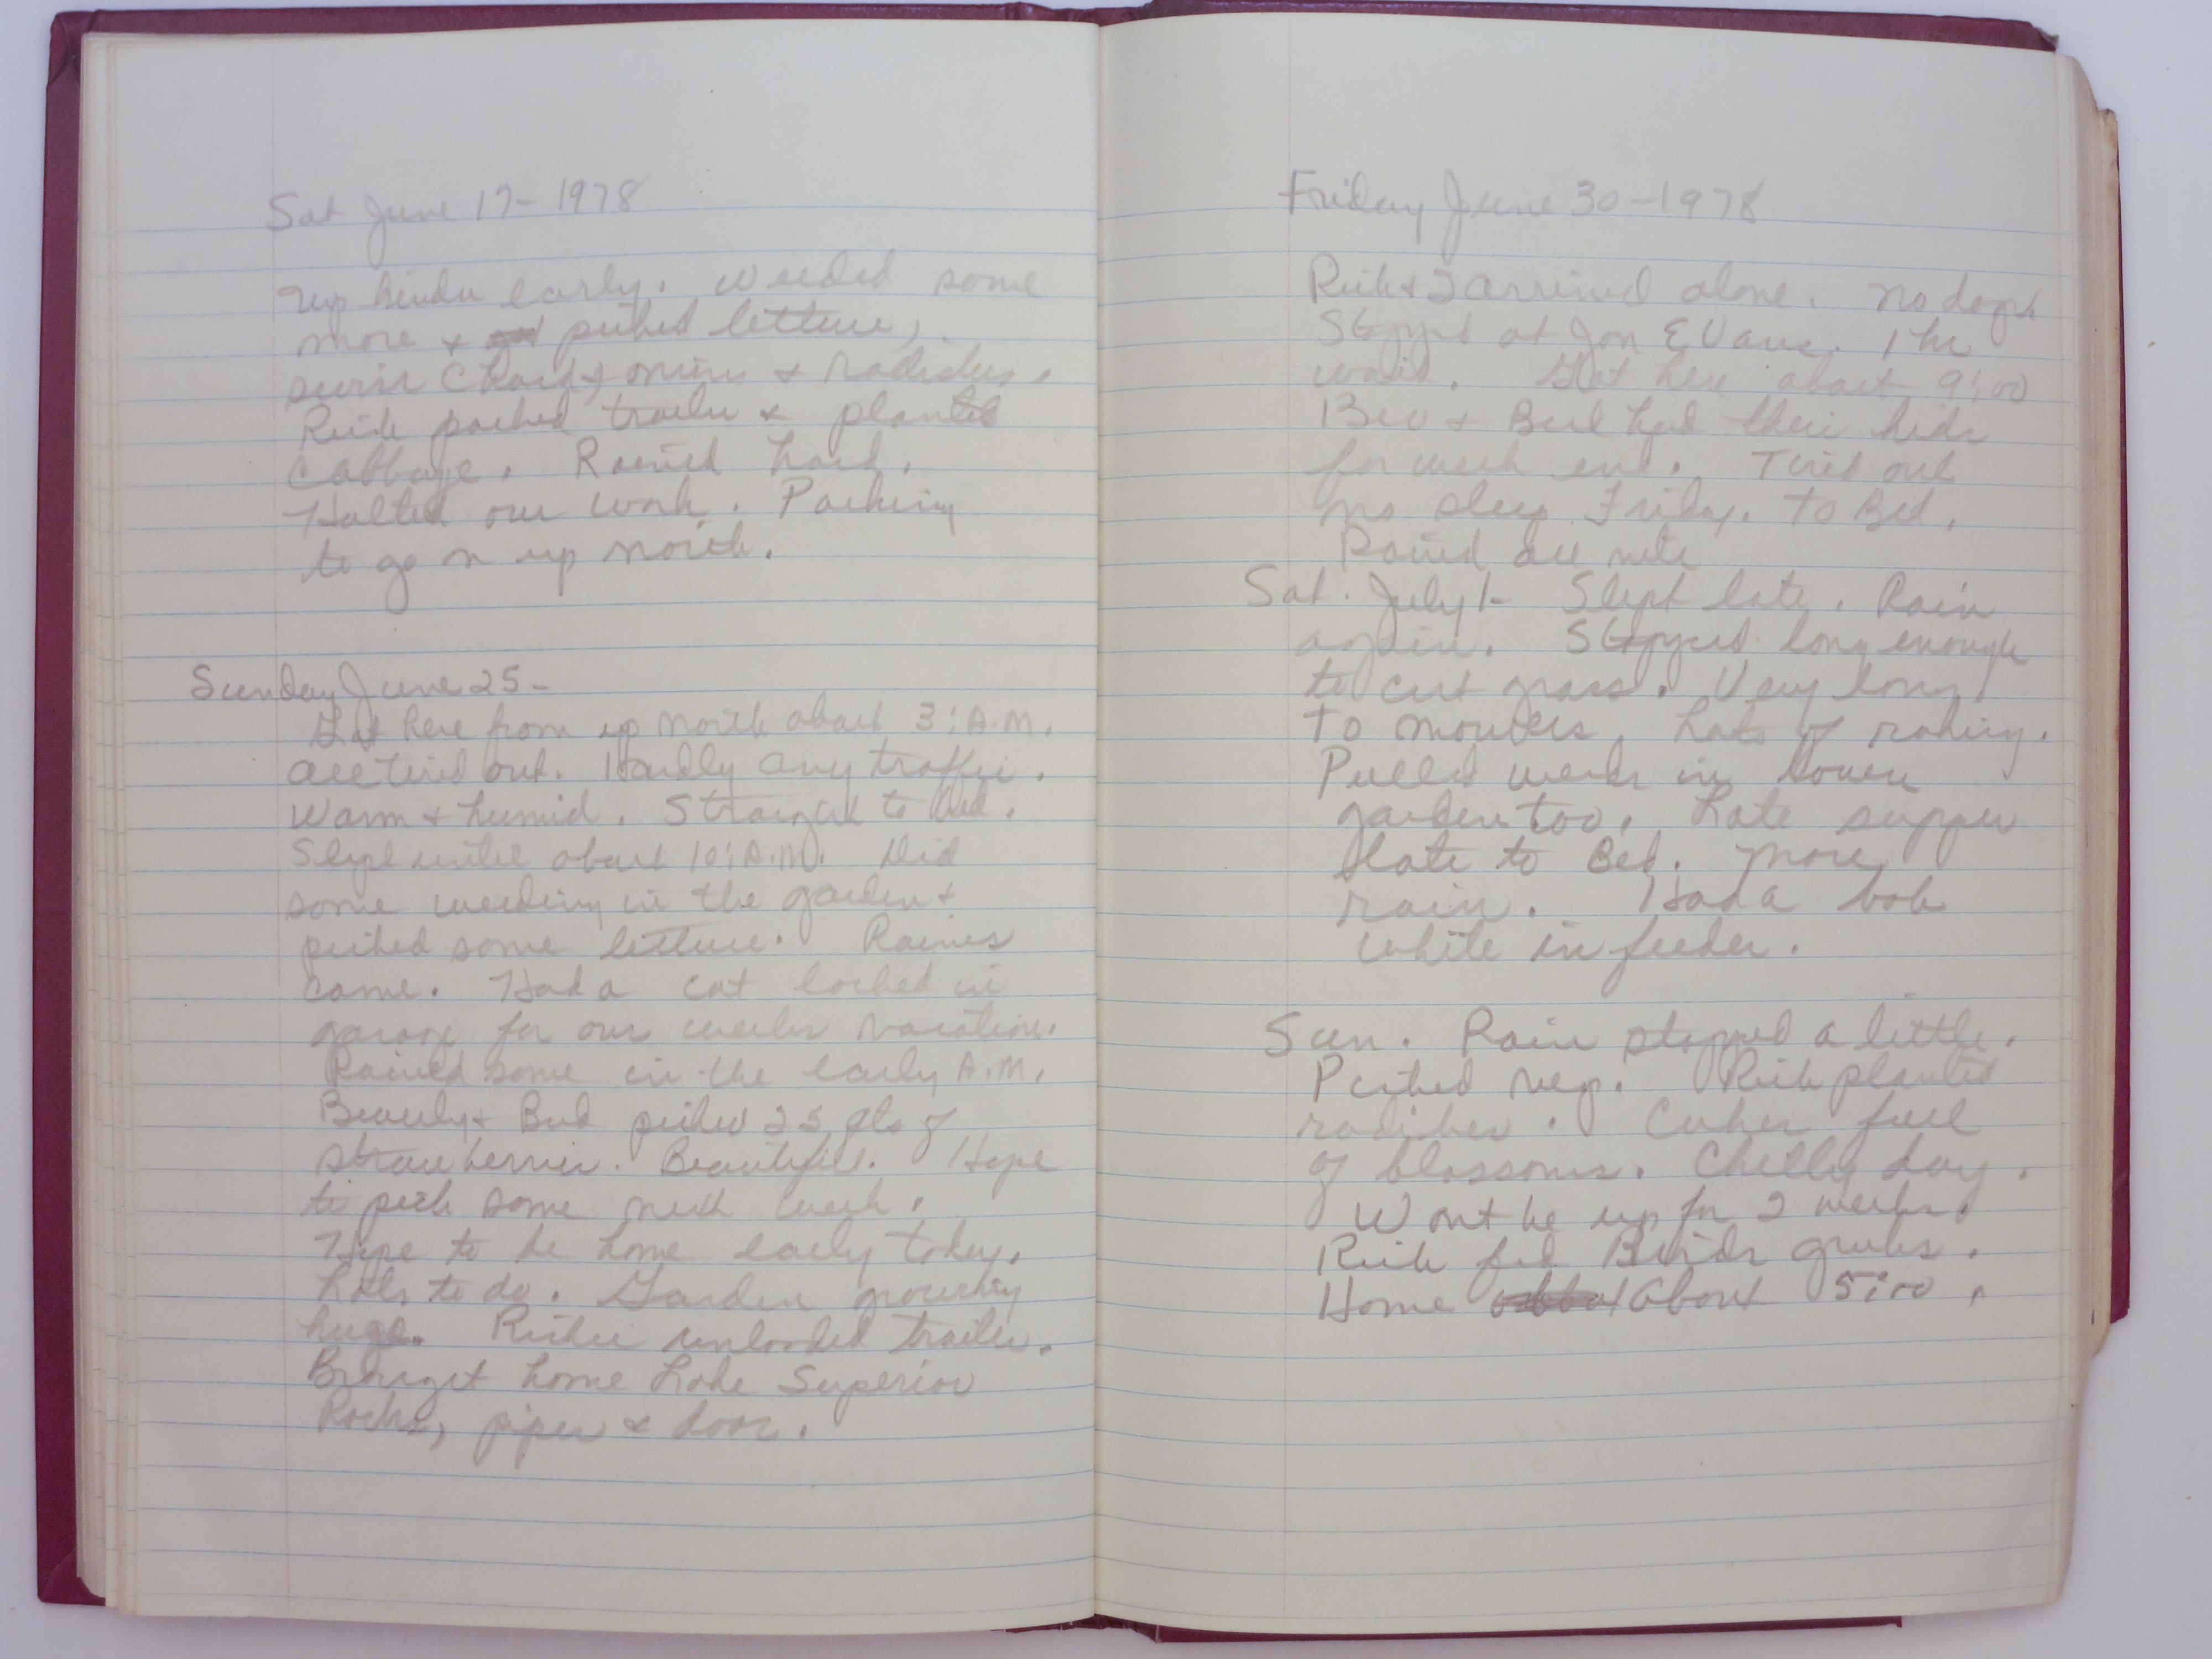 Sat June 17-1978
Up kinda early. Weeded some
more & picked lettuce,
swiss chard & onions & radishes.
Rick packed trailer & planted
cabbage. Rained hard.
Halted our work. Packing
to go on up north.
Sunday June 25-
Got here from up north about 3:A.M.
all tired out. Hardly any traffic.
Warm & humid. Straight to bed.
Slept until about 10:A.M. Did
some weeding in the garden &
picked some lettuce. Raines
came. Had a cat locked in
garage for our weeks vacation.
Rained some in the early A.M.
Beverly & Bud picked 25 qts of
strawberries. Beautiful. Hope
to pick some next week.
Hope to be home early today.
Lots to do. Garden growing
huge. Richie unloaded trailer.
Brought home Lake Superior
Rocks, pipes & door.
Friday June 30-1978
Rick & I arrived alone. No dogs
Stopped at Jon Evans. 1 hr
wait. Got here about 9:00
Bev & Bud had their kids
for week end. Tired out
no sleep Friday. To Bed.
Rained all nite
Sat. July 1- Slept late. Rain
again. Stopped long enough
to cut grass. Very long
to mowers. Lots of raking.
Pulled weeds in lower
garden too. Late supper
late to Bed. More
rain. Had a bob
white in feeder.
Sun. Rain stopped a little.
Picked veg. Rick planted
radishes. Cukes full
of blossoms. Chilly day.
Wont be up for 2 weeks.
Rick fed Birds grubs.
Home about 5:00.